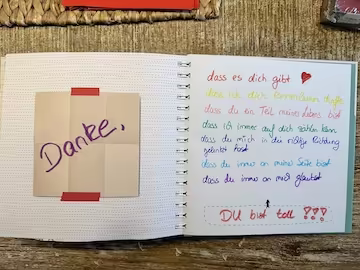 Danke,
dass es dich gibt
dass ich dich kennenlernen durfte
dass du ein Teil meines Lebens bist
dass ich immer auf dich zählen kann
dass du mich in die richtige Richtung
gelenkt hast
dass du immer an meiner Seite bist
dass du immer an mich glaubst
DU bist toll !!!